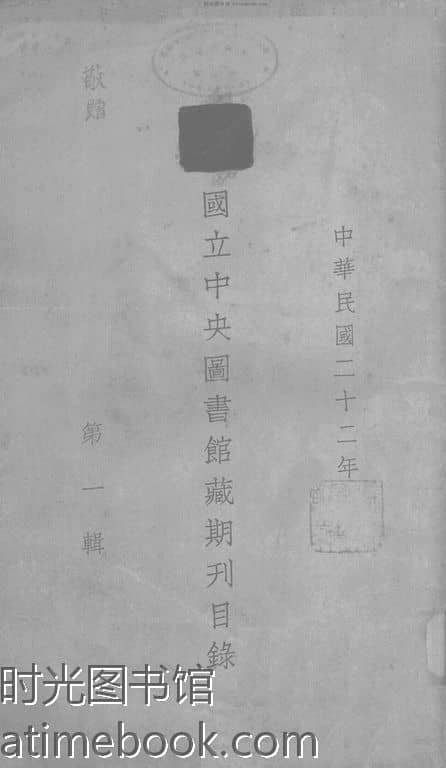 中華民國二十二年
國立中央圖書館藏期刊目錄
第一輯
敬贈
时光图书馆
atimebook.com